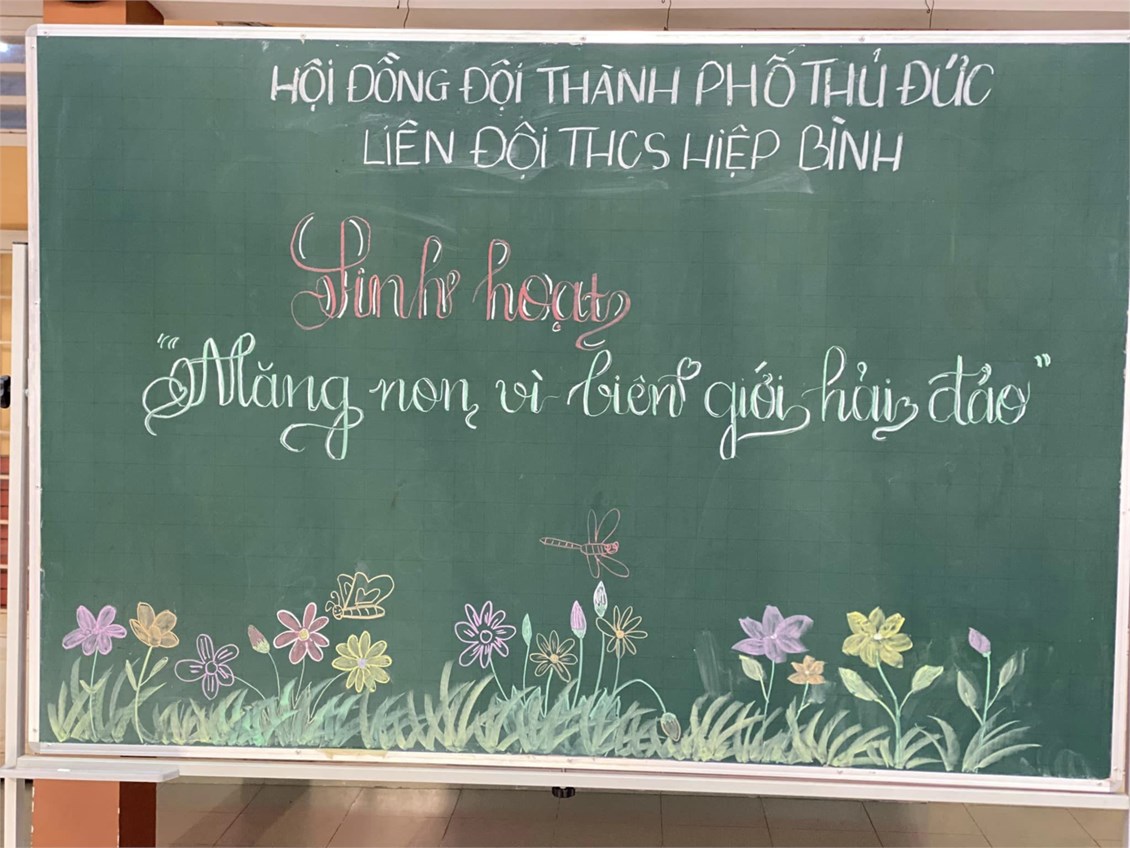 HỘI ĐỒNG ĐỘI THÀNH PHỐ THỦ ĐỨC
LIÊN ĐỘI THCS HIỆP BÌNH
Sinh hoạt
"Măng non vì biên giới hải đảo"